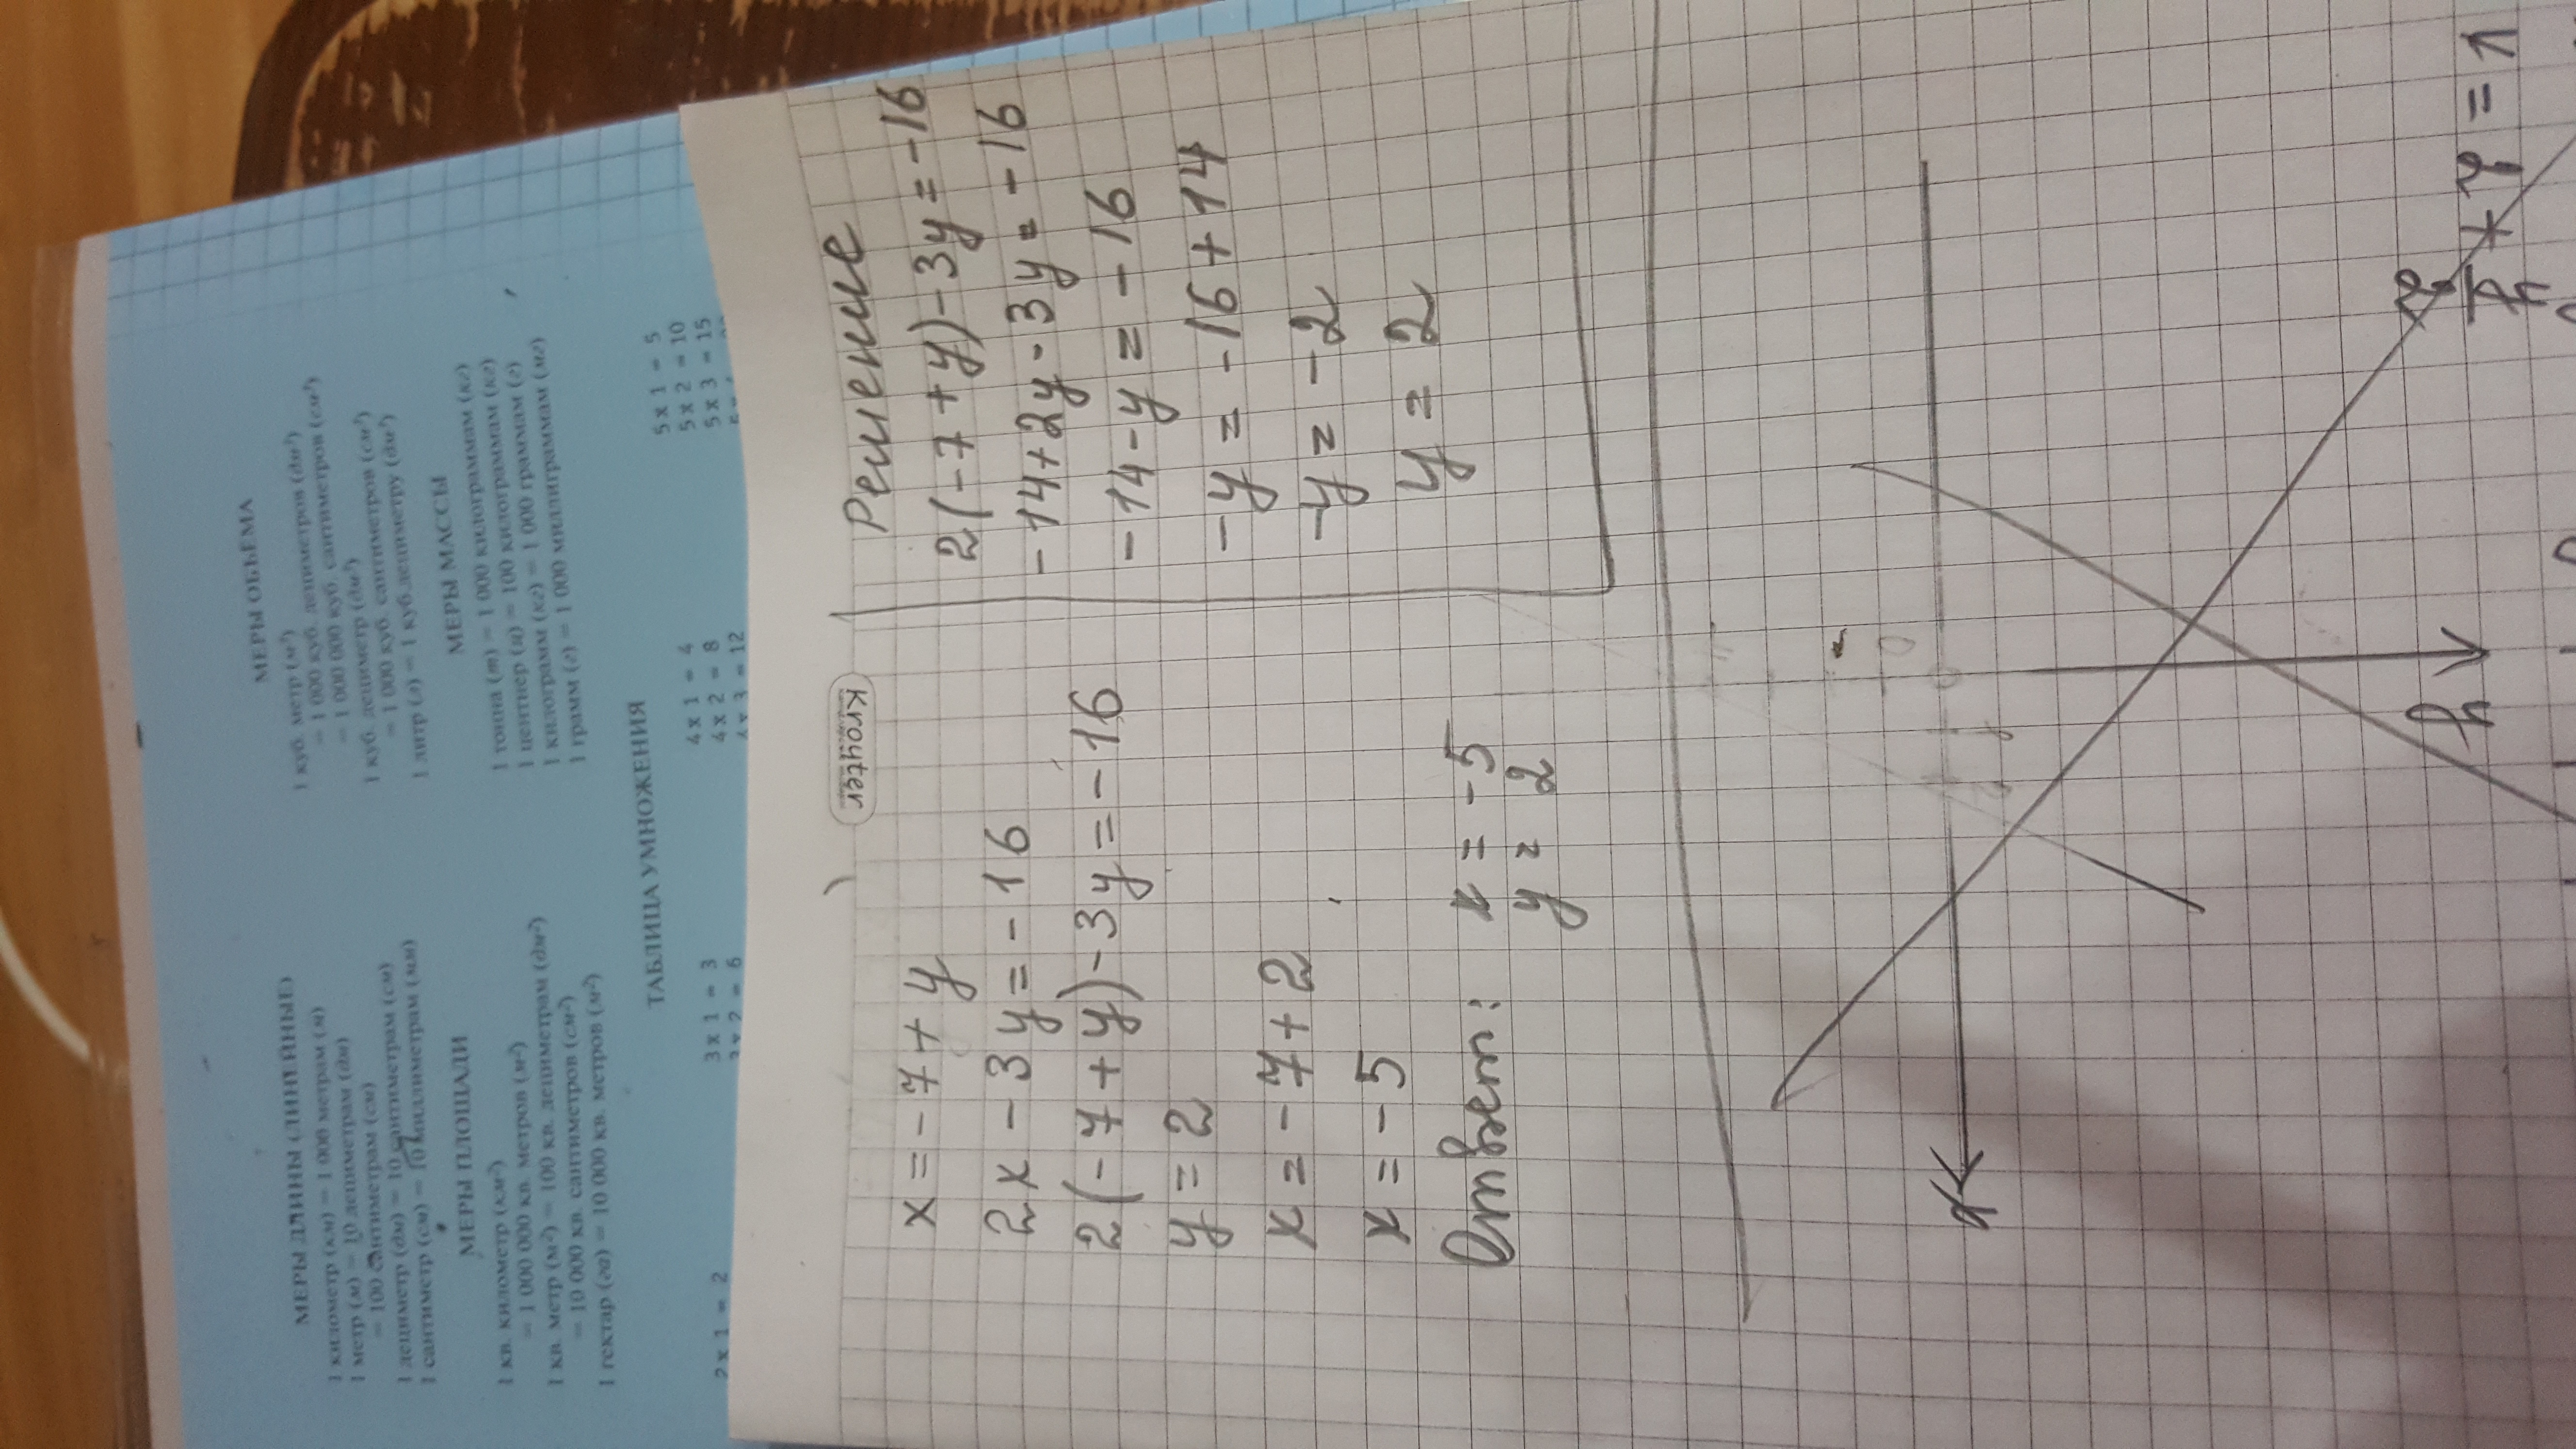 МЕРЫ ДЛИНЫ (ЛИНЕЙНЫЕ)
1 километр (км) = 1 000 метрам (м)
1 метр (м) = 10 дециметрам (дм)
= 100 сантиметрам (см)
1 дециметр (дм) = 10 сантиметрам (см)
1 сантиметр (см) = 10 миллиметрам (мм)
МЕРЫ ПЛОЩАДИ
1 кв. километр (км²)
= 1 000 000 кв. метров (м²)
1 кв. метр (м²) = 100 кв. дециметрам (дм²)
= 10 000 кв. сантиметров (см²)
1 гектар (га) = 10 000 кв. метров (м²)
МЕРЫ ОБЪЁМА
1 куб. метр (м³)
= 1 000 куб. дециметров (дм³)
= 1 000 000 куб. сантиметров (см³)
1 куб. дециметр (дм³)
= 1 000 куб. сантиметров (см³)
1 литр (л) = 1 куб. дециметру (дм³)
МЕРЫ МАССЫ
1 тонна (т) = 1 000 килограммам (кг)
1 центнер (ц) = 100 килограммам (кг)
1 килограмм (кг) = 1 000 граммам (г)
1 грамм (г) = 1 000 миллиграммам (мг)
ТАБЛИЦА УМНОЖЕНИЯ
2 x 1 = 2
3 x 1 = 3
3 x 2 = 6
4 x 1 = 4
4 x 2 = 8
4 x 3 = 12
5 x 1 = 5
5 x 2 = 10
5 x 3 = 15
Kroyter
x = -7 + y
2x - 3y = -16
2(-7 + y) - 3y = -16
y = 2
x = -7 + 2
x = -5
Ответ: x = -5
y = 2
Решение
2(-7 + y) - 3y = -16
-14 + 2y - 3y = -16
-14 - y = -16
-y = -16 + 14
-y = -2
y = 2